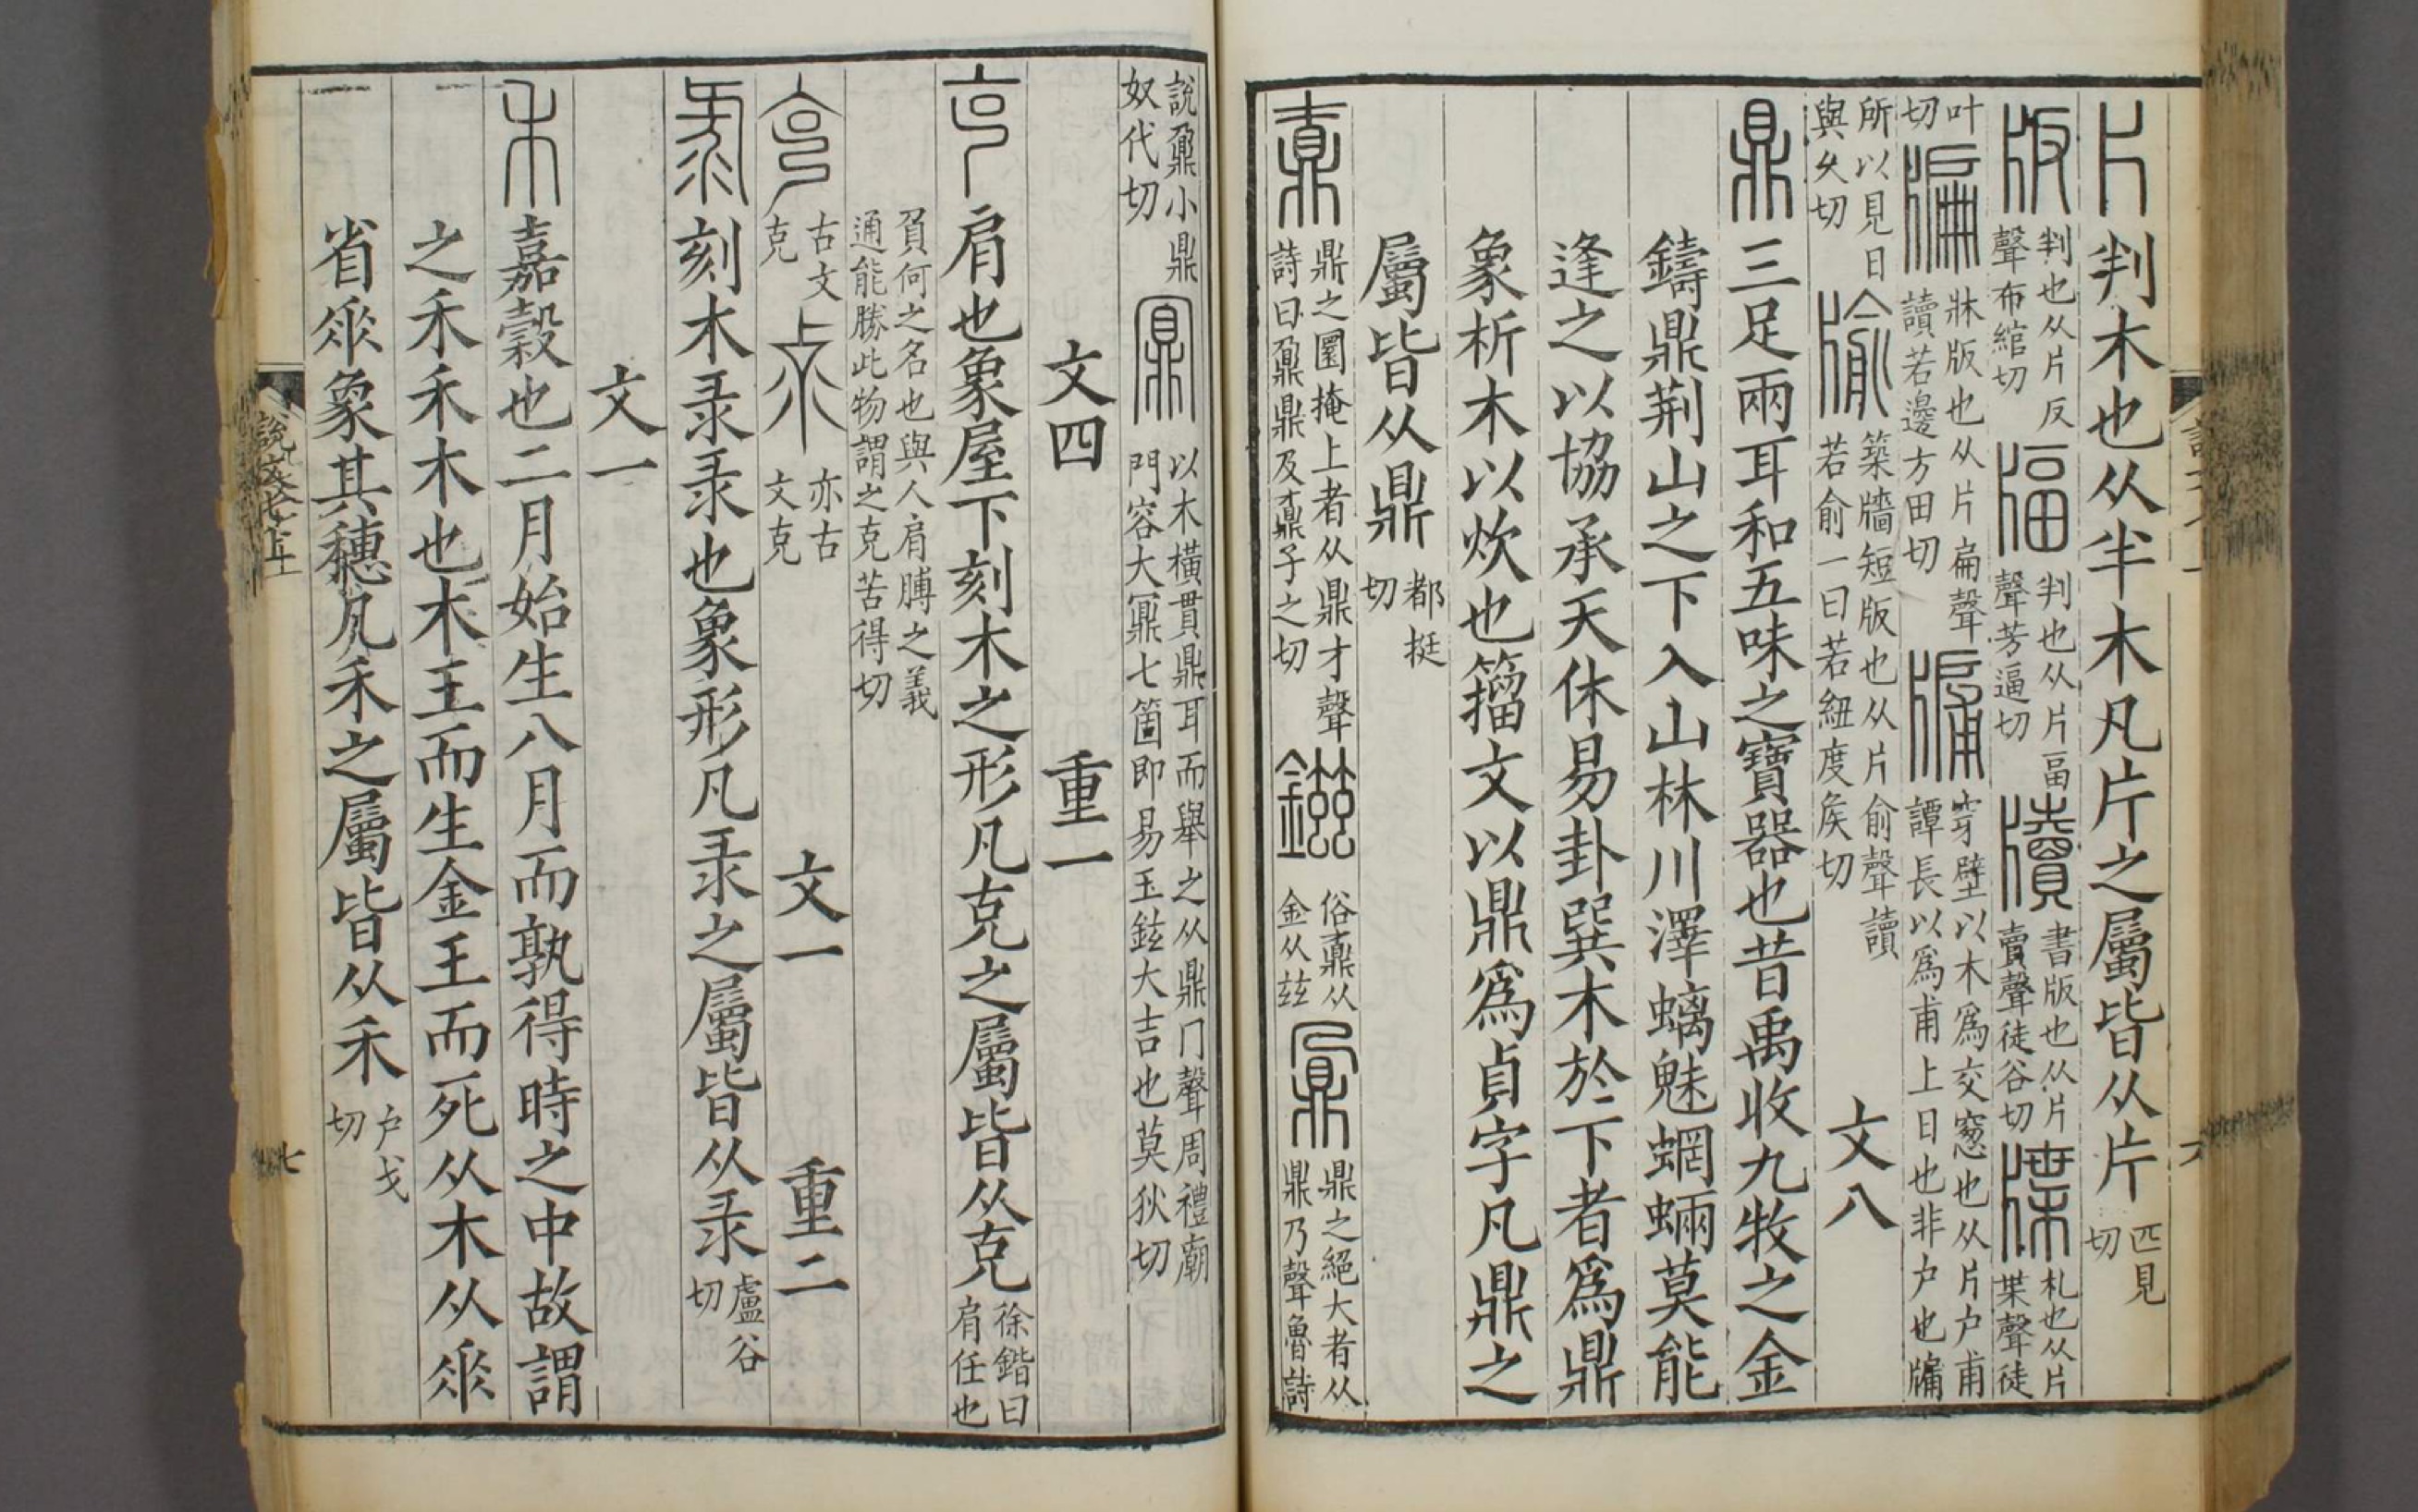 片 判木也从半木凡片之屬皆从片 匹見切
版 判也从片反聲布綰切 𤗚 判也从片畐聲芳逼切 牘 書版也从片賣聲徒谷切 牒 札也从片枼聲徒
叶切 牑 牀版也从片扁聲讀若邊方田切 牖 穿壁以木爲交窻也从片户甫譚長以爲甫上日也非户也牖
所以見日與久切 牏 築牆短版也从片俞聲讀若俞一曰若紐度矦切 文八
鼎 三足兩耳和五味之寶器也昔禹收九牧之金
鑄鼎荆山之下入山林川澤螭魅蝄蜽莫能
逢之以協承天休易卦巽木於下者爲鼎
象析木以炊也籒文以鼎爲貞字凡鼎之
屬皆从鼎 都挺切
鼒 鼎之圜掩上者从鼎才聲詩曰鼐鼎及鼒子之切 鎡 俗鼒从金从兹 鼐 鼎之絕大者从鼎乃聲魯詩
說鼐小鼎奴代切 鼏 以木橫貫鼎耳而舉之从鼎冂聲周禮廟門容大鼏七箇即易玉鉉大吉也莫狄切
文四 重一
克 肩也象屋下刻木之形凡克之屬皆从克 徐鍇曰肩任也
負何之名也與人肩膊之義通能勝此物謂之克苦得切
古文克 亦古文克 文一 重二
彔 刻木彔彔也象形凡彔之屬皆从彔 盧谷切
文一
禾 嘉穀也二月始生八月而孰得時之中故謂
之禾禾木也木王而生金王而死从木从𠂹
省𠂹象其穗凡禾之屬皆从禾 户戈切
說文七上
七